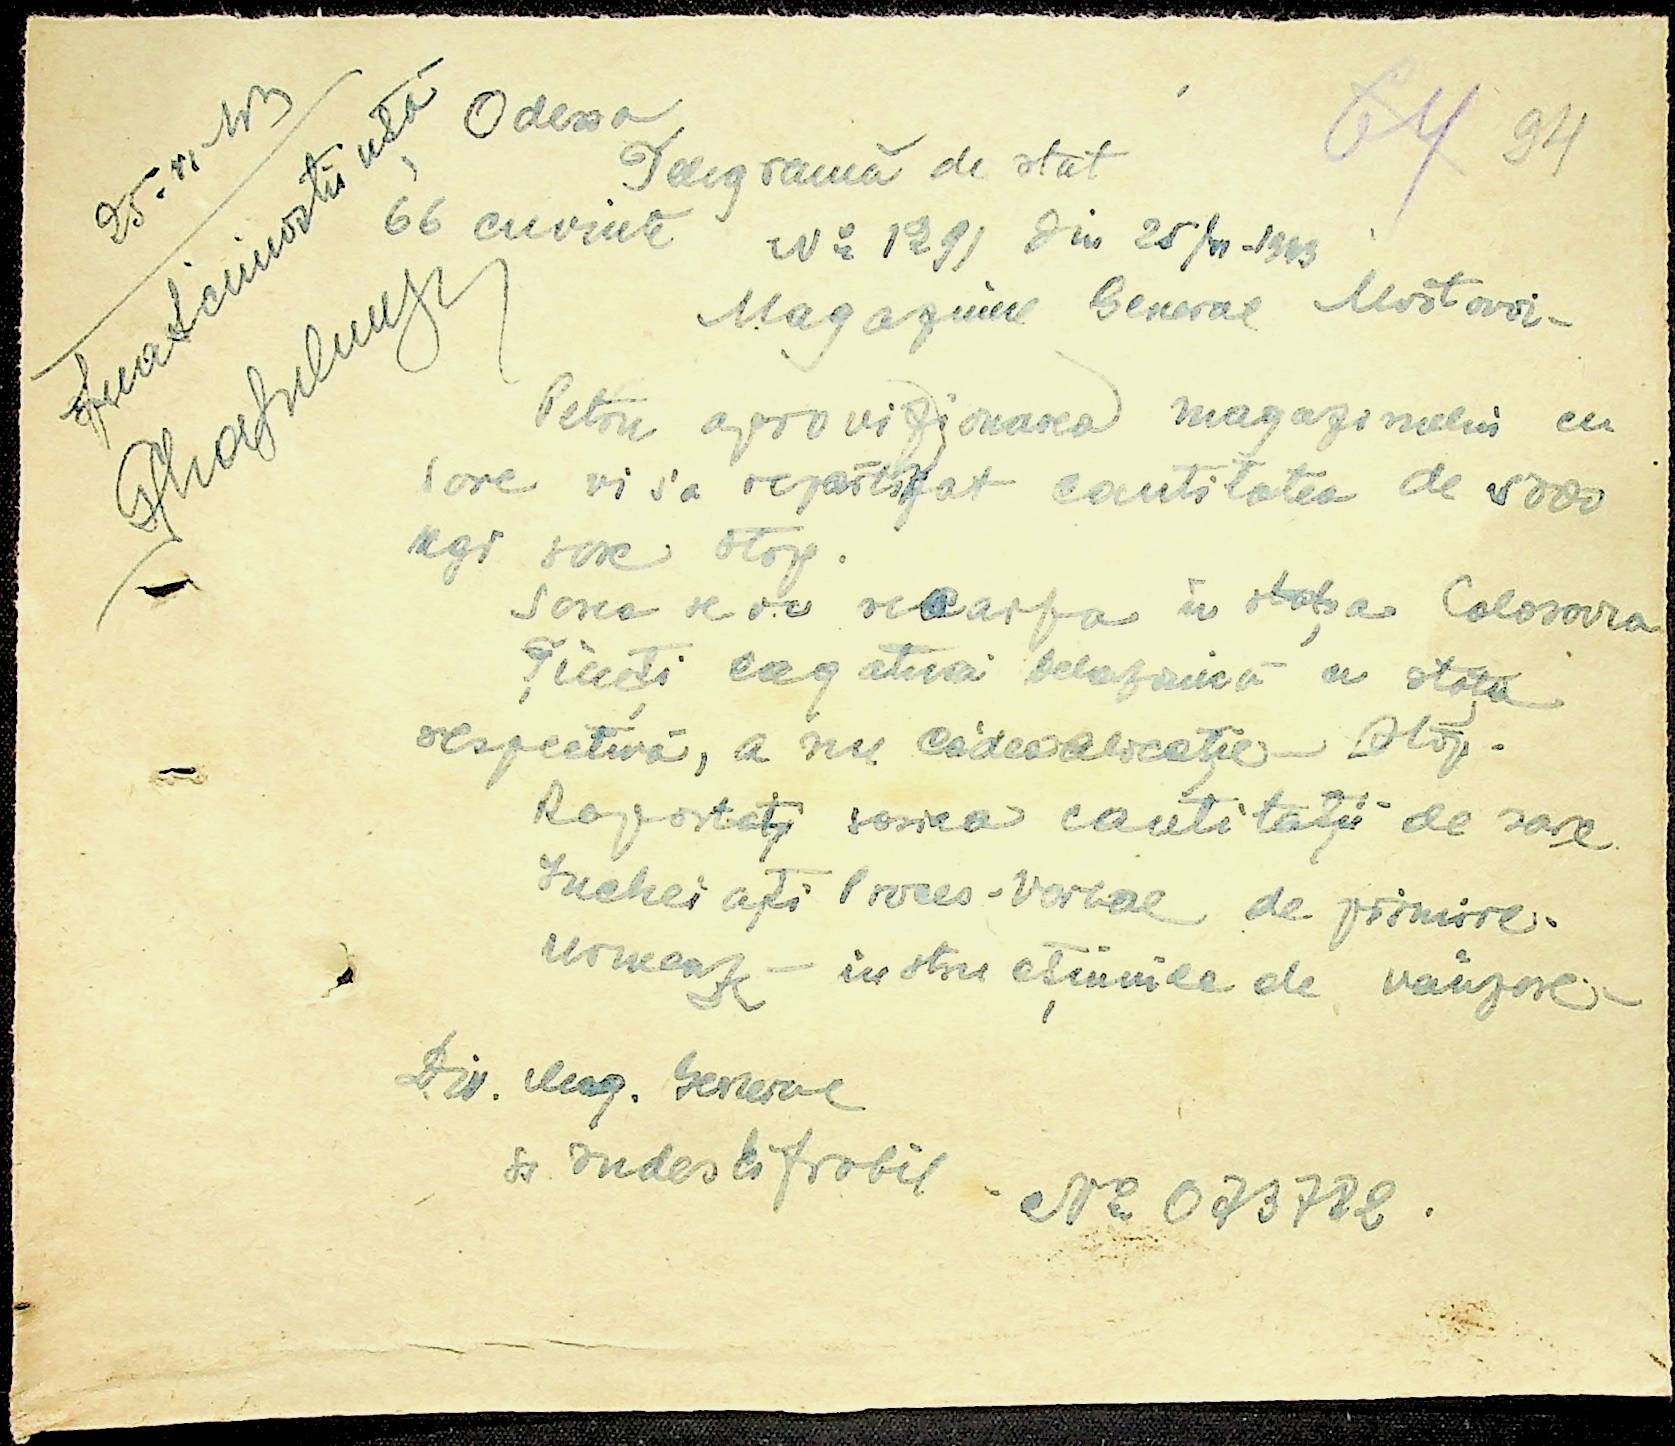 25. VI 43
Am luat cunoștință
Odesa
64 94
Telegramă de stat
66 cuvinte № 1291 din 25/VI-1943
Magazinul General Mostovoi-
Petru aprovizionarea magazinului cu
sare vi s'a repartizat cantitatea de 5000
kgr sare stop.
Sarea se va descarca in stația Colosovca
Țineți legatura cu stația
respectivă, a nu cădea locație - Stop.
Raportați sosirea cantității de sare
Incheiați Proces-Verbal de primire.
Urmează - instrucțiunile de vânzare -
Dir. Mag. General
ss indescifrabil
№ 073722.